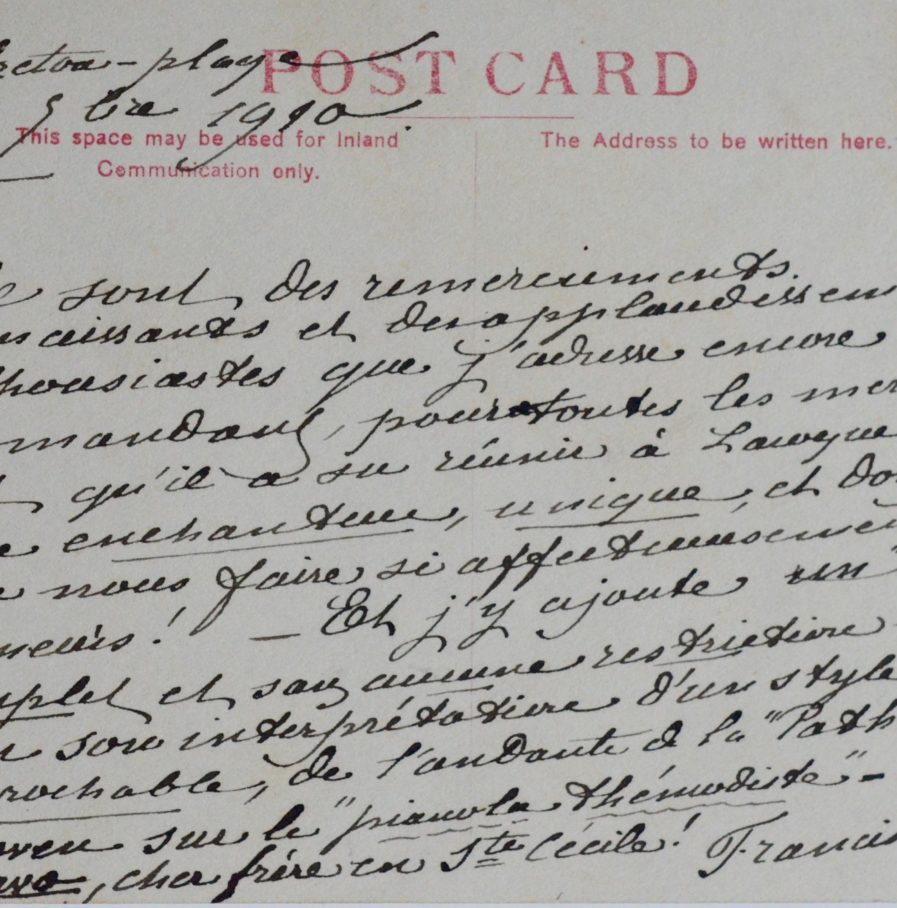 POST CARD
-plage
bre 1910
This space may be used for Inland
Communication only.
The Address to be written here.
sont des remerciements
naissants et des applaudissem
thousiastes que j'adresse encore
mandant, pour toutes les mer
qu'il a su réunir à
enchanteur, unique, et do
nous faire si affectueusement
neurs! — Et j'y ajoute un
mplet et sans aucune restriction
son interprétation d'un style
rochable, de l'andante de la "Path
oven sur le "pianola thémodiste" -
avo, cher frère en Ste Cécile! Francis